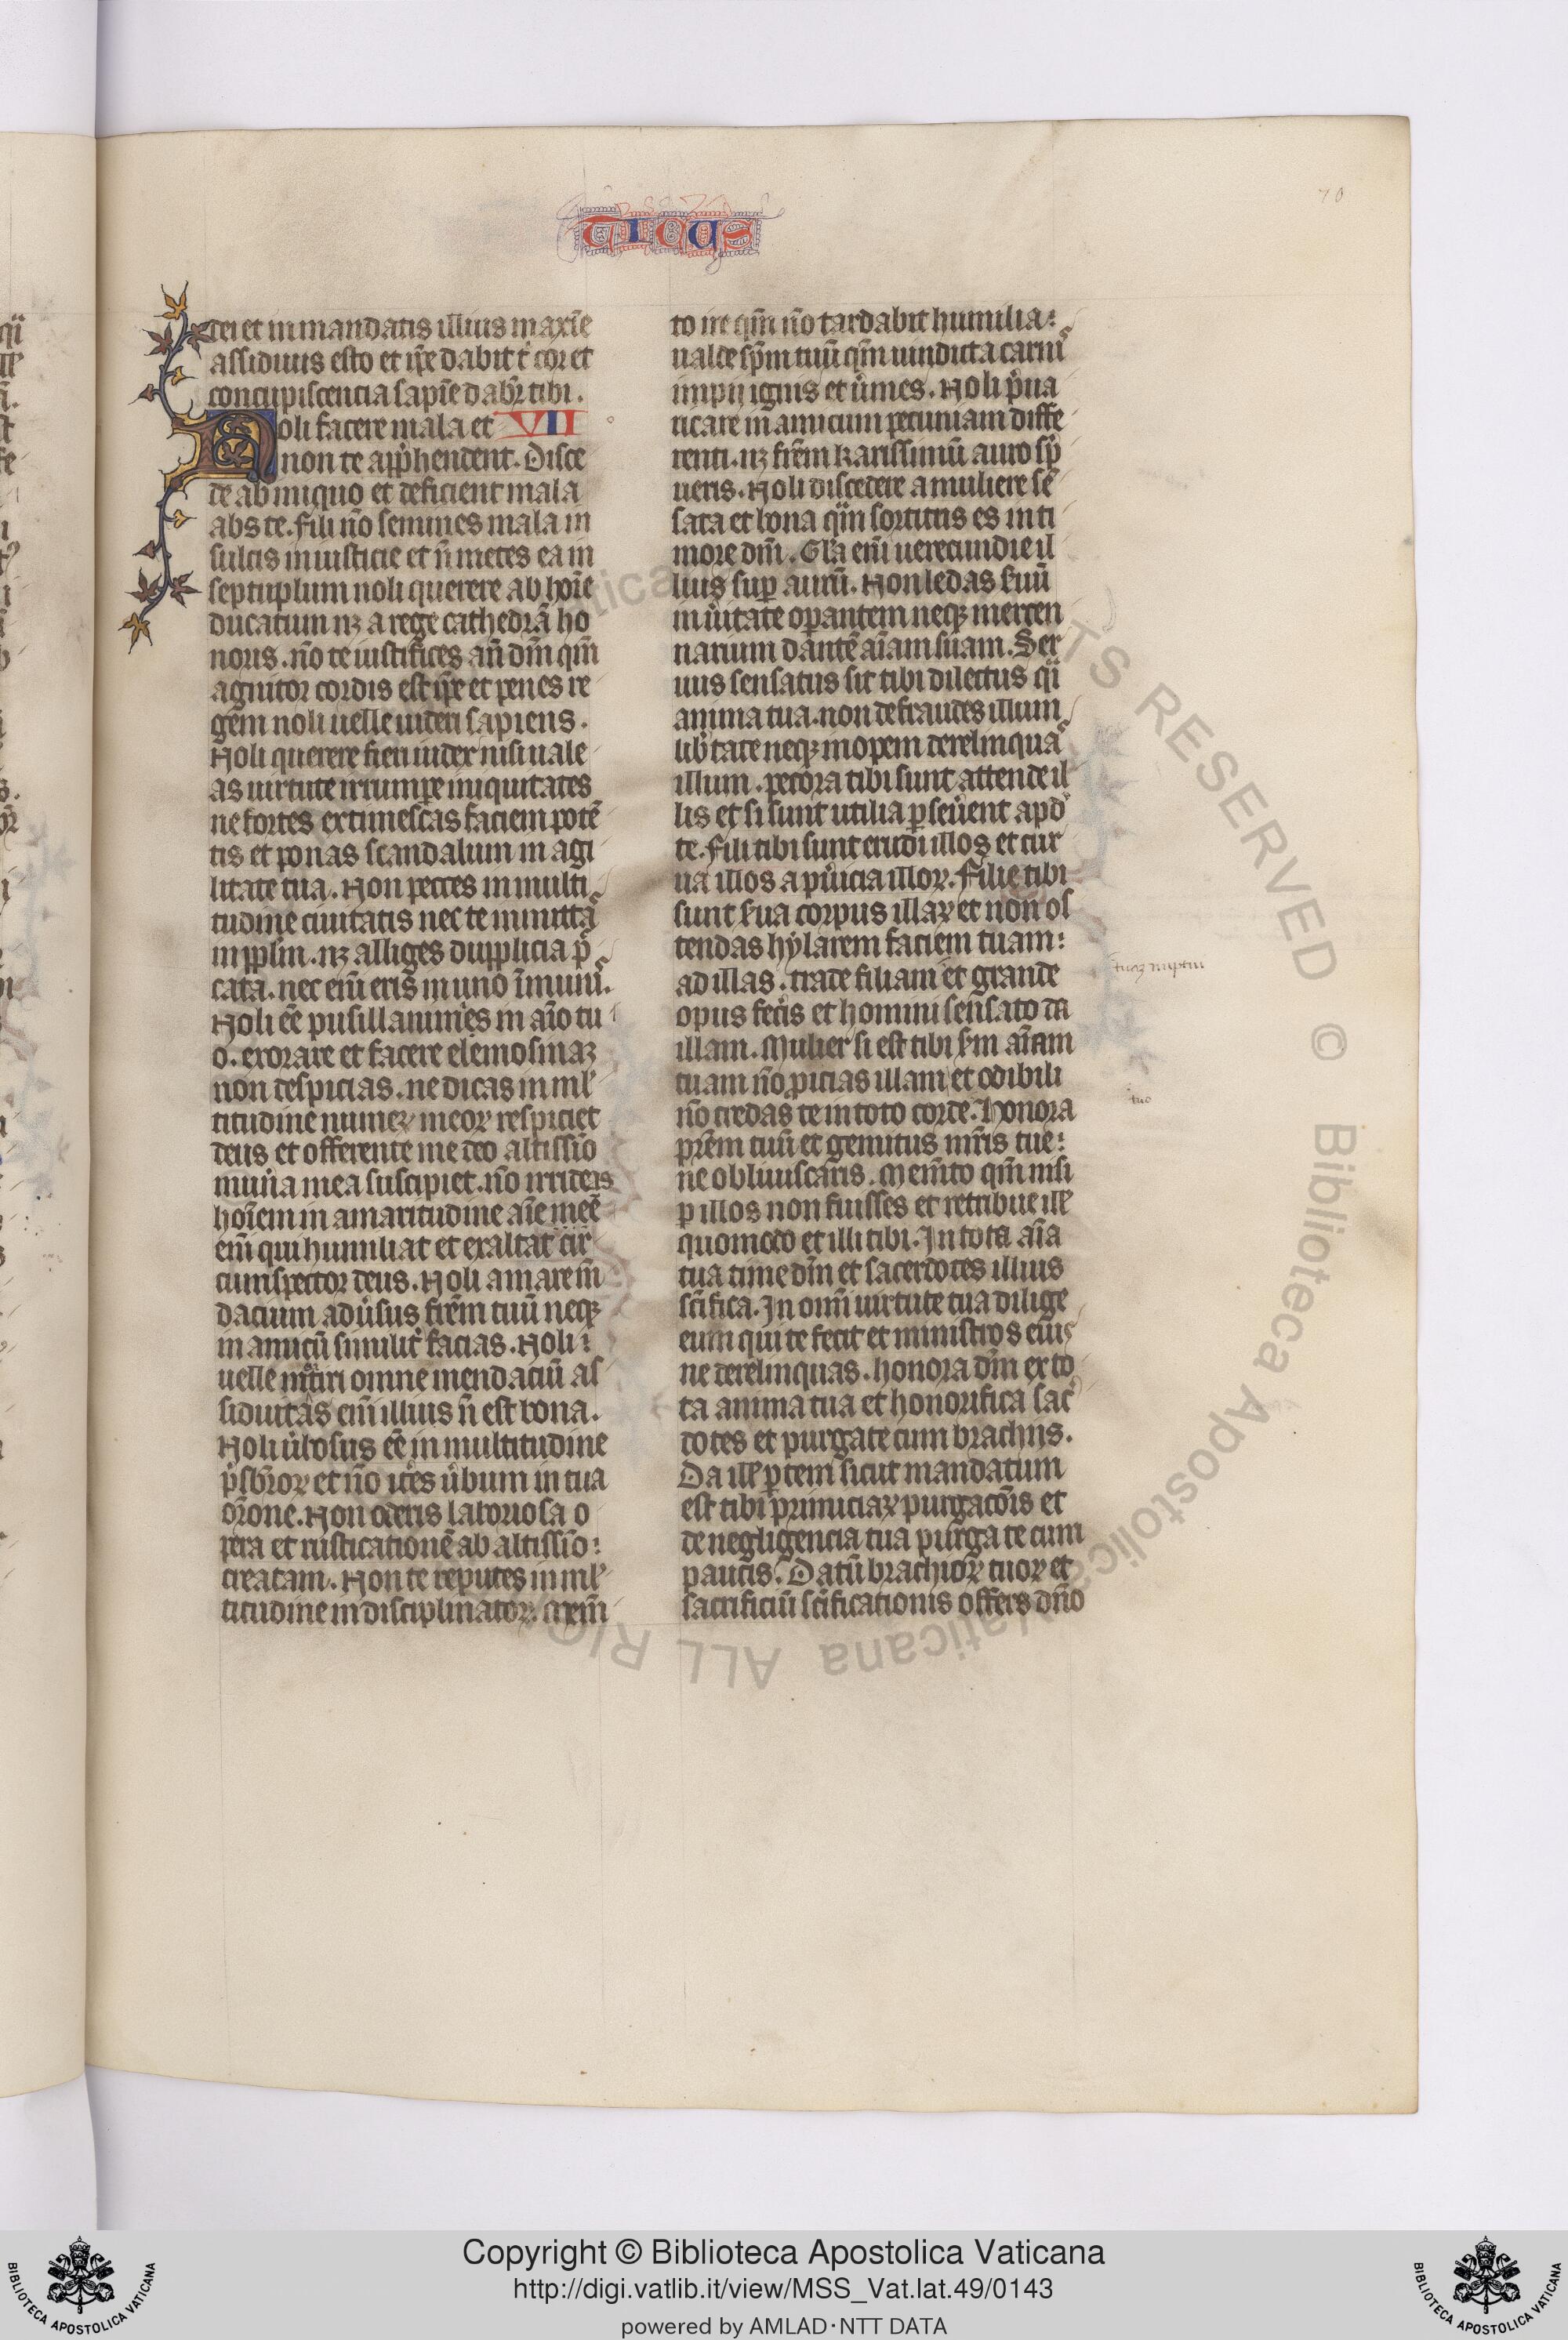 TICUS
70
dei et in mandatis illius maxīe
assiduus esto et ip̄e dabit t̉ cor et
concupiscencia sapīe dabr̄ tibi.
Noli facere mala et VII
non te app̄hendent. Disce
de ab iniquo et deficient mala
abs te. Fili nō semines mala in
sulcis iniusticie et n̄ metes ea in
septuplum noli querere ab hoīe
ducatum nꝫ a rege cathedrā ho
noris. nō te iustifices an̄ dm̄ qm̄
agnitor cordis est ip̄e et penes re
gem noli uelle uideri sapiens.
Noli querere fieri iudex nisi uale
as uirtute irrumpe iniquitates
ne fortes extimescas faciem potē
tis et ponas scandalum in agi
litate tua. Non pecces in multi
tudine ciuitatis nec te inmittas
in pplm̄. nꝫ alliges dupplicia p̄
cata. nec em̄ eris in uno īmunis.
Noli eē pusillanimes in aīo tu
o. exorare et facere elemosinaꝫ
non despicias. ne dicas in ml̉
titudine munerꝝ meoꝝ respiciet
deus et offerente me deo altissīo
mun̄a mea suscipiet. nō irrideas
hoīem in amaritudine aīe mee
em̄ qui humiliat et exaltat cir
cumspector deus. Noli amare m̄
dacium adūsus frēm tuū neqꝫ
in amicū similit̉ facias. Noli
uelle mētiri omne mendaciū as
siduitas em̄ illius n̄ est bona.
Noli ūbosus eē in multitudine
p̄sbr̄oꝝ et nō it̉es ūbum in tua
or̄one. Non oderis laboriosa o
pera et rusticationē ab altissīo
creatam. Non te reputes in ml̉
titudine indisciplinatoꝝ.
to ire qm̄ nō tardabit humilia
ualde sp̄m tuū qm̄ uindicta carnis
impij ignis et ūmes. Noli p̄ua
ricare in amicum pecuniam diffe
renti. nꝫ frēm karissimū auro sp̄
ueris. Noli discedere a muliere sē
sata et bona qm̄ sortitus es in ti
more dm̄. Gl̄a em̄ uerecundie il
lius suꝑ aurū. Non ledas ẜuū
in ūitate oꝑantem neqꝫ mercen
narium dantē aīam suam. Ser
uus sensatus sit tibi dilectus qi
anima tua. non defraudes illum
lib̉tate neqꝫ inopem derelinquas
illum. pecora tibi sunt attende il
lis et si sunt utilia ꝑseūent apd
te. Fili tibi sunt erudi illos et cur
ua illos a pūicia illoꝝ. Filie tibi
sunt ẜua corpus illaꝝ et non os
tendas hylarem faciem tuam
ad illas. trade filiam et grande
opus fec̉is et homini sensato da
illam. Mulier si est tibi ẜm aīam
tuam nō ꝓicias illam et odibili
nō credas te in toto corde. Honora
prēm tuū et gemitus mr̄is tue
ne obliuiscaris. Mem̄to qm̄ nisi
ꝑ illos non fuisses et retribue ill̉
quomodo et illi tibi. In tota aīa
tua time dm̄ et sacerdotes illius
scīfica. In omī uirtute tua dilige
eum qui te fecit et ministros eius
ne derelinquas. honora dm̄ ex to
ta anima tua et honorifica sac̉
dotes et purga te cum brachijs.
Da ill̉ ꝑtem sicut mandatum
est tibi primiciaꝝ purgacōis et
de negligencia tua purga te cum
paucis. Datū brachioꝝ tuoꝝ et
sacrificiū scīficationis offers dn̄o
tuo
ALL RIGHTS RESERVED © Biblioteca Apostolica Vaticana
BIBLIOTECA APOSTOLICA VATICANA
Copyright © Biblioteca Apostolica Vaticana
http://digi.vatlib.it/view/MSS_Vat.lat.49/0143
powered by AMLAD·NTT DATA
BIBLIOTECA APOSTOLICA VATICANA